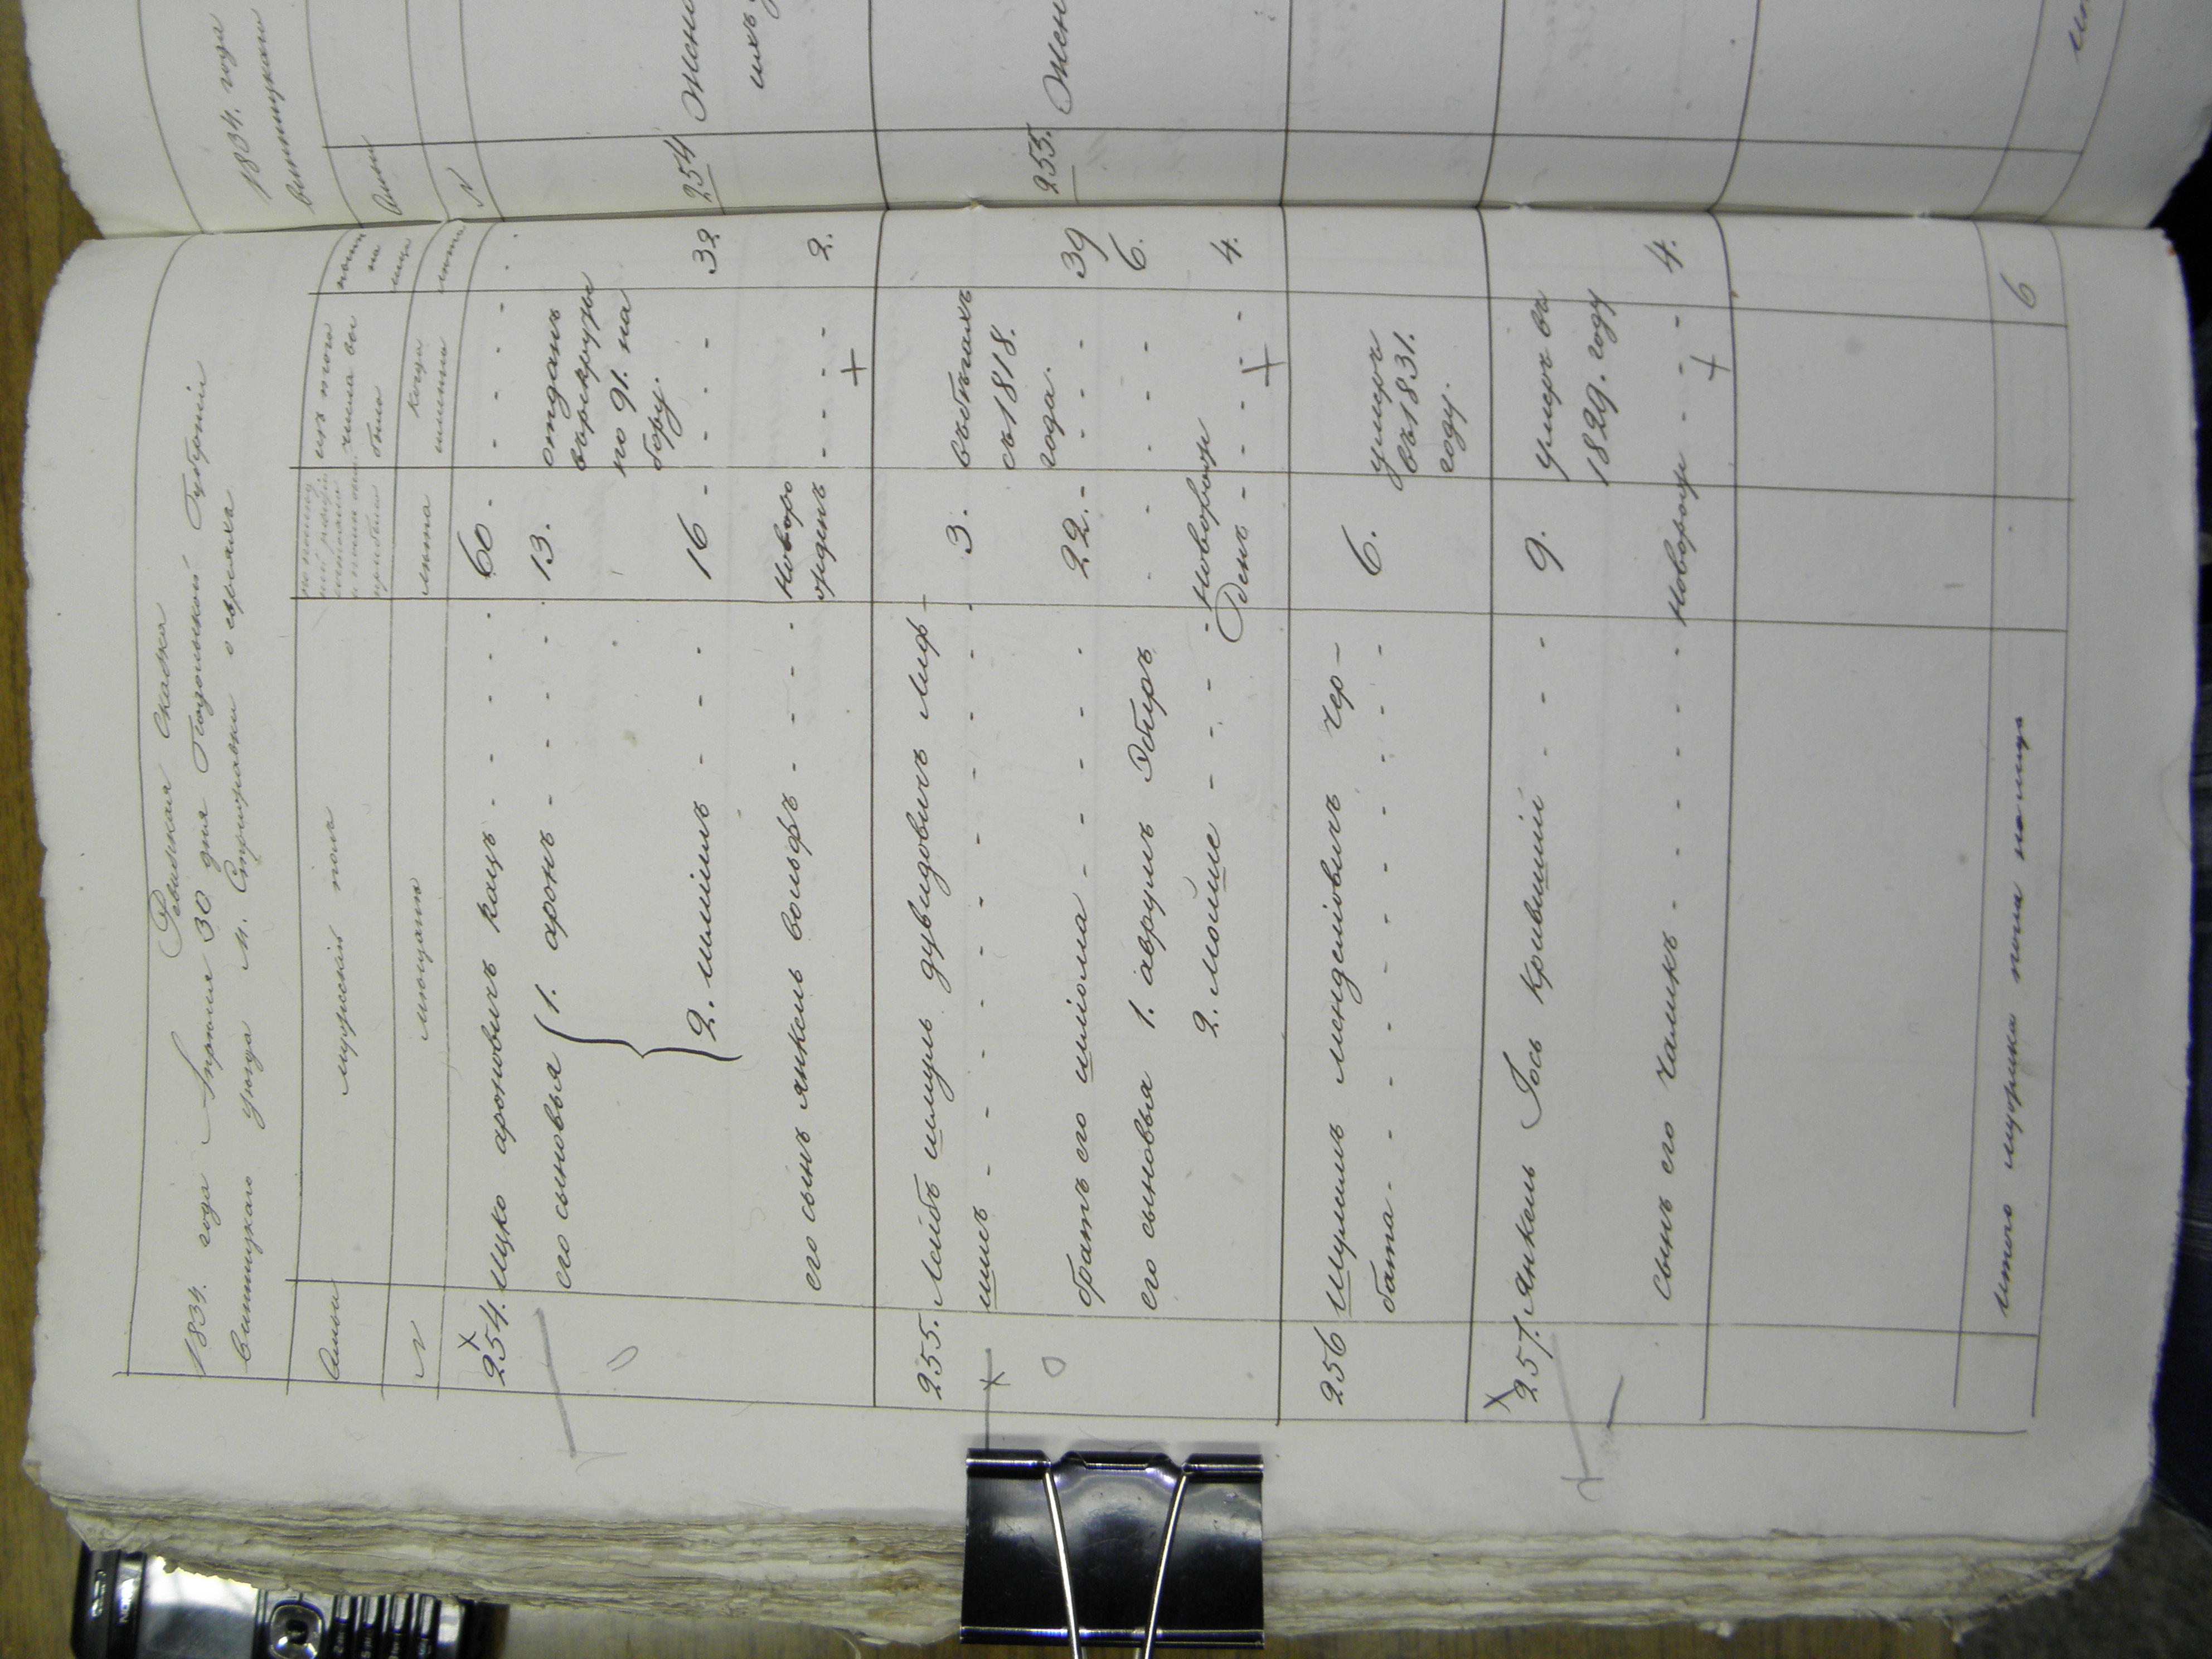 Ревизская сказка
1834. года Апреля 30 дня Подольской Губернiи
Винницкаго уезда М. Стрижавки о евреяхъ
Семьи
мужескiй полъ
изъ того числа вы было
ныне на лицо
N
мещане
лета
когда имянно
лета
254. Ицко ароновичъ кацъ - - - - - 60 - - - -
его сыновья 1. аронъ - - - - 13. отданъ
врекруты
по 91. на
бору.
2. шлiомъ - - - - 16 - - - - 32
его сынъ янкель вольфъ - - - - Новоро
жденъ - - - - 2.
255. Лейбъ шмуль дувидовичъ лиф-
шицъ - - - - - - - - - 3. въбегахъ
съ 1818.
года.
братъ его шлiома - - - - - 22. - - - - 39
его сыновья 1. аврумъ Эберъ - - - - 6.
2. мойше - - - - Новорож
денъ - - - - 4.
256 Шулимъ менделiовичъ чер-
бата - - - - - - - - 6. умеръ
въ 1831.
году.
257. Янкель Iось кривишiй - - - 9. Умеръ въ
1829. году
Сынъ его Хаимъ - - - - - Новорож - - - 4.
итого мужеска пола налицо 6
1834. года
винницкаго
Семьи
N
254 Жен
ихъ
255. Жен